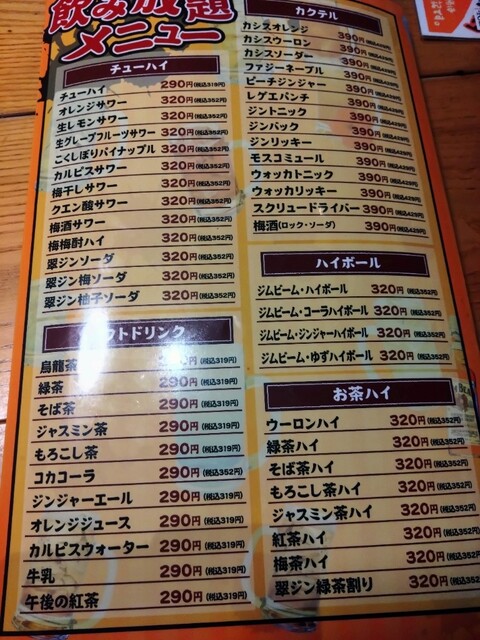 飲み放題
メニュー
チューハイ
チューハイ 290円(税込319円)
オレンジサワー 320円(税込352円)
生レモンサワー 320円(税込352円)
生グレープフルーツサワー 320円(税込352円)
こくしぼりパイナップル 320円(税込352円)
カルピスサワー 320円(税込352円)
梅干しサワー 320円(税込352円)
クエン酸サワー 320円(税込352円)
梅酒サワー 320円(税込352円)
梅梅酎ハイ 320円(税込352円)
翠ジンソーダ 320円(税込352円)
翠ジン梅ソーダ 320円(税込352円)
翠ジン柚子ソーダ 320円(税込352円)
フトドリンク
烏龍茶 290円(税込319円)
緑茶 290円(税込319円)
そば茶 290円(税込319円)
ジャスミン茶 290円(税込319円)
もろこし茶 290円(税込319円)
コカコーラ 290円(税込352円)
ジンジャーエール 290円(税込319円)
オレンジジュース 290円(税込319円)
カルピスウォーター 290円(税込319円)
牛乳 290円(税込319円)
午後の紅茶 290円(税込319円)
カクテル
カシスオレンジ 390円(税込429円)
カシスウーロン 390円(税込429円)
カシスソーダー 390円(税込429円)
ファジーネーブル 390円(税込429円)
ピーチジンジャー 390円(税込429円)
レゲエパンチ 390円(税込429円)
ジントニック 390円(税込429円)
ジンバック 390円(税込429円)
ジンリッキー 390円(税込429円)
モスコミュール 390円(税込429円)
ウォッカトニック 390円(税込429円)
ウォッカリッキー 390円(税込429円)
スクリュードライバー 390円(税込429円)
梅酒(ロック・ソーダ) 390円(税込429円)
ハイボール
ジムビーム・ハイボール 320円(税込352円)
ジムビーム・コーラハイボール 320円(税込352円)
ジムビーム・ジンジャーハイボール 320円(税込352円)
ジムビーム・ゆずハイボール 320円(税込352円)
お茶ハイ
ウーロンハイ 320円(税込352円)
緑茶ハイ 320円(税込352円)
そば茶ハイ 320円(税込352円)
もろこし茶ハイ 320円(税込352円)
ジャスミン茶ハイ 320円(税込352円)
紅茶ハイ 320円(税込352円)
梅茶ハイ 320円(税込352円)
翠ジン緑茶割り 320円(税込352円)